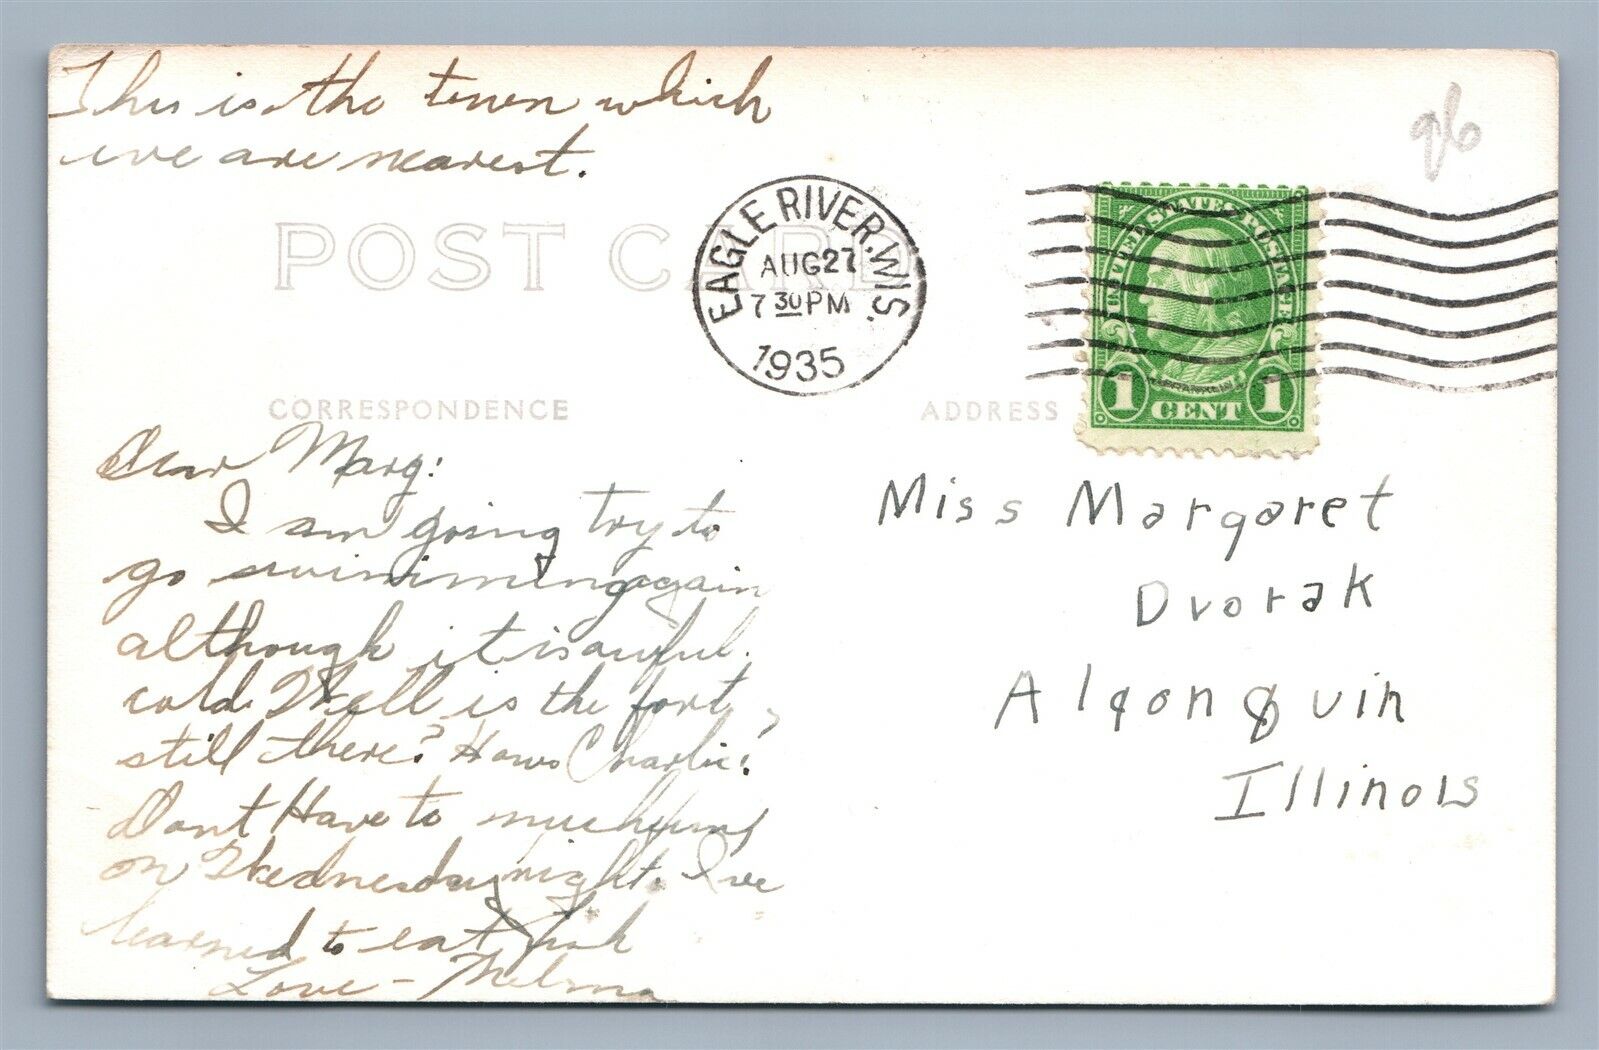 This is the town which
we are nearest.
96
POST CARD
EAGLE RIVER, WIS.
AUG 27
7 30 PM
1935
UNITED STATES POSTAGE
FRANKLIN
1 CENT 1
CORRESPONDENCE
ADDRESS
Dear Marg:
I am going try to
go swimming again
although it is awful
cold. Well is the fort
still there? Hows Charlie?
Dont Have to much fun
on Wednesday night. I've
learned to eat fish
Love - Melma
Miss Margaret
Dvorak
Algonquin
Illinois